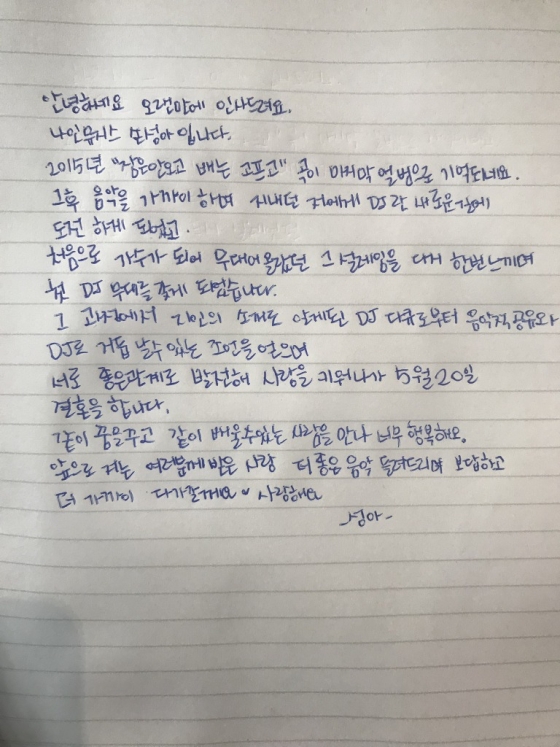 안녕하세요 오랜만에 인사드려요.
나인뮤지스 손성아 입니다.
2015년 "잠은안오고 배는 고프고" 곡이 마지막 앨범으로 기억되네요.
그후 음악을 가까이 하며 지내던 저에게 DJ란 새로운점에
도전 하게 되었고.
처음으로 가수가 되어 무대에 올랐던 그 설레임을 다시 한번 느끼며
첫 DJ 무대를 갖게 되었습니다.
그 과정에서 지인의 소개로 알게된 DJ 다큐로부터 음악적공유와
DJ로 거듭 날수 있는 조언을 얻으며
서로 좋은관계로 발전해 사랑을 키워나가 5월 20일
결혼을 합니다.
같이 꿈을꾸고 같이 배울수있는 사람을 만나 너무 행복해요.
앞으로 저는 여러분께 받은 사랑 더 좋은 음악 들려드리며 보답하고
더 가까이 다가갈게요♥ 사랑해요
-성아-